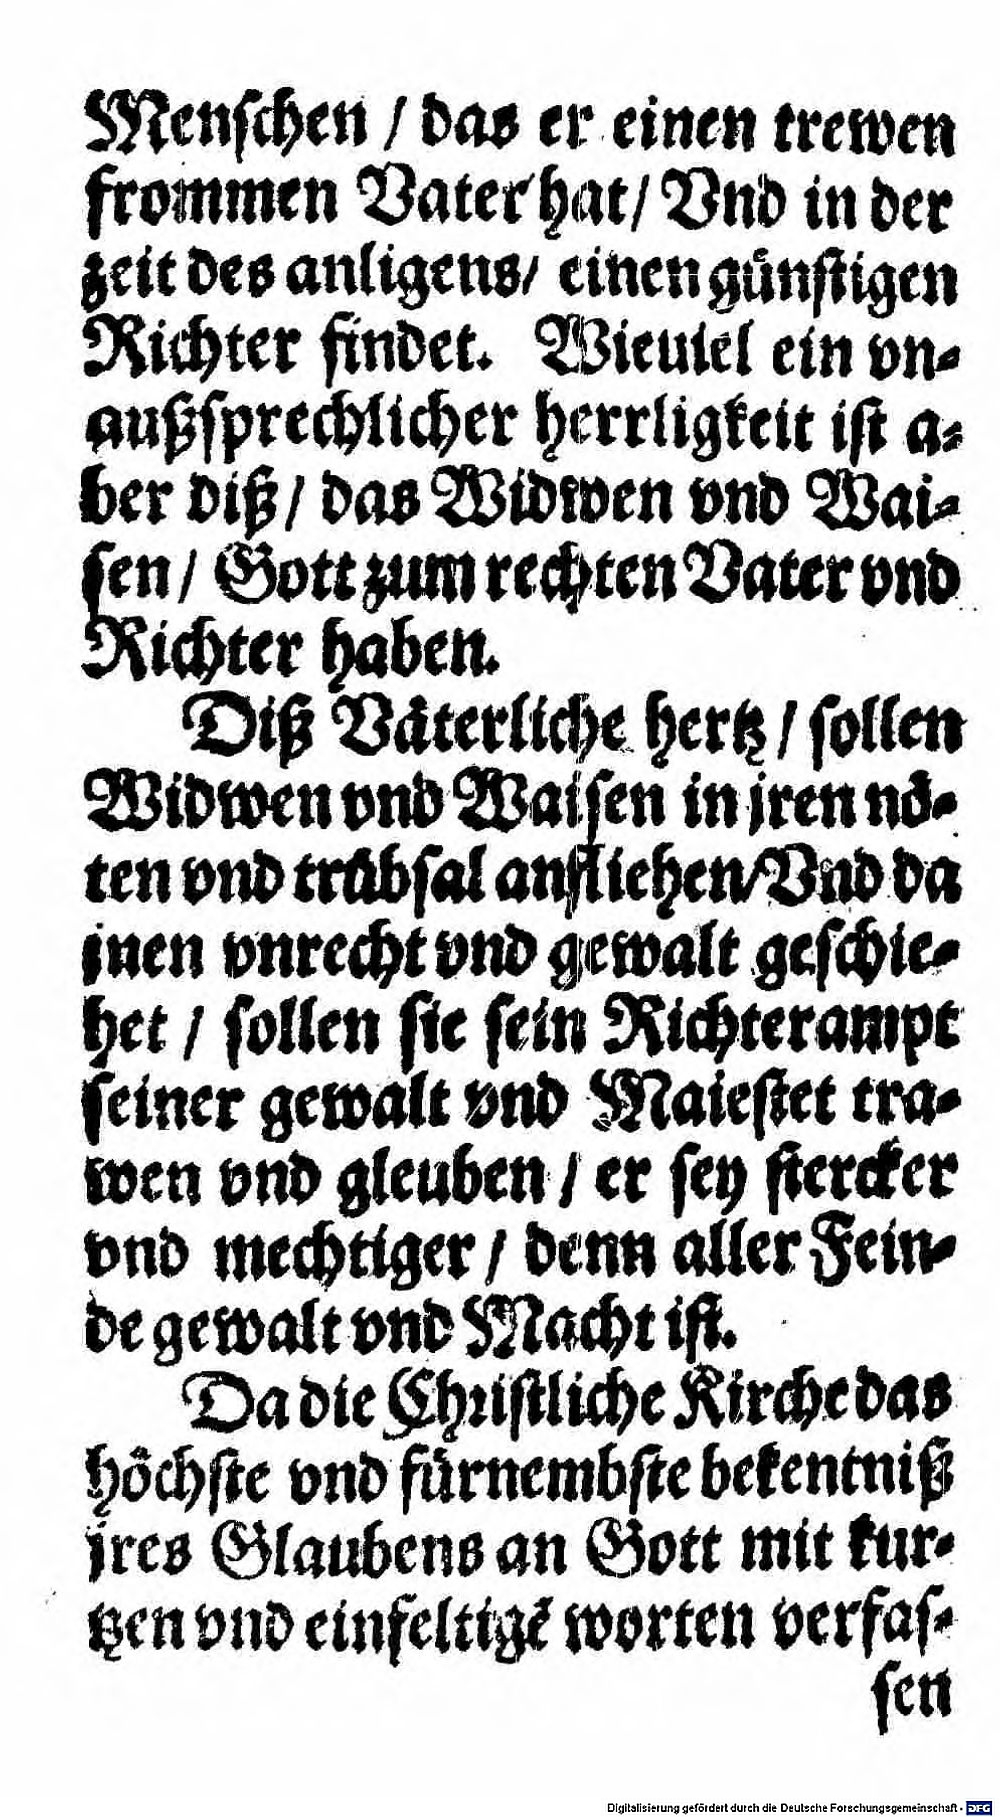 Menschen / das er einen trewen
frommen Vater hat / Vnd in der
zeit des anligens / einen günstigen
Richter findet. Wieuiel ein vn⸗
außsprechlicher herrligkeit ist a⸗
ber diß / das Widwen vnd Wai⸗
sen / Gott zum rechten Vater vnd
Richter haben.
Diß Väterliche hertz / sollen
Widwen vnd Waisen in jren nö⸗
ten vnd trübsal anfliehen / Vnd da
jnen vnrecht vnd gewalt geschie⸗
het / sollen sie sein Richterampt
seiner gewalt vnd Maiestet tra⸗
wen vnd gleuben / er sey stercker
vnd mechtiger / denn aller Fein⸗
de gewalt vnd Macht ist.
Da die Christliche Kirche das
höchste vnd fürnembste bekentniß
jres Glaubens an Gott mit kur⸗
tzen vnd einfeltigē worten verfas⸗
sen
Digitalisierung gefördert durch die Deutsche Forschungsgemeinschaft - DFG